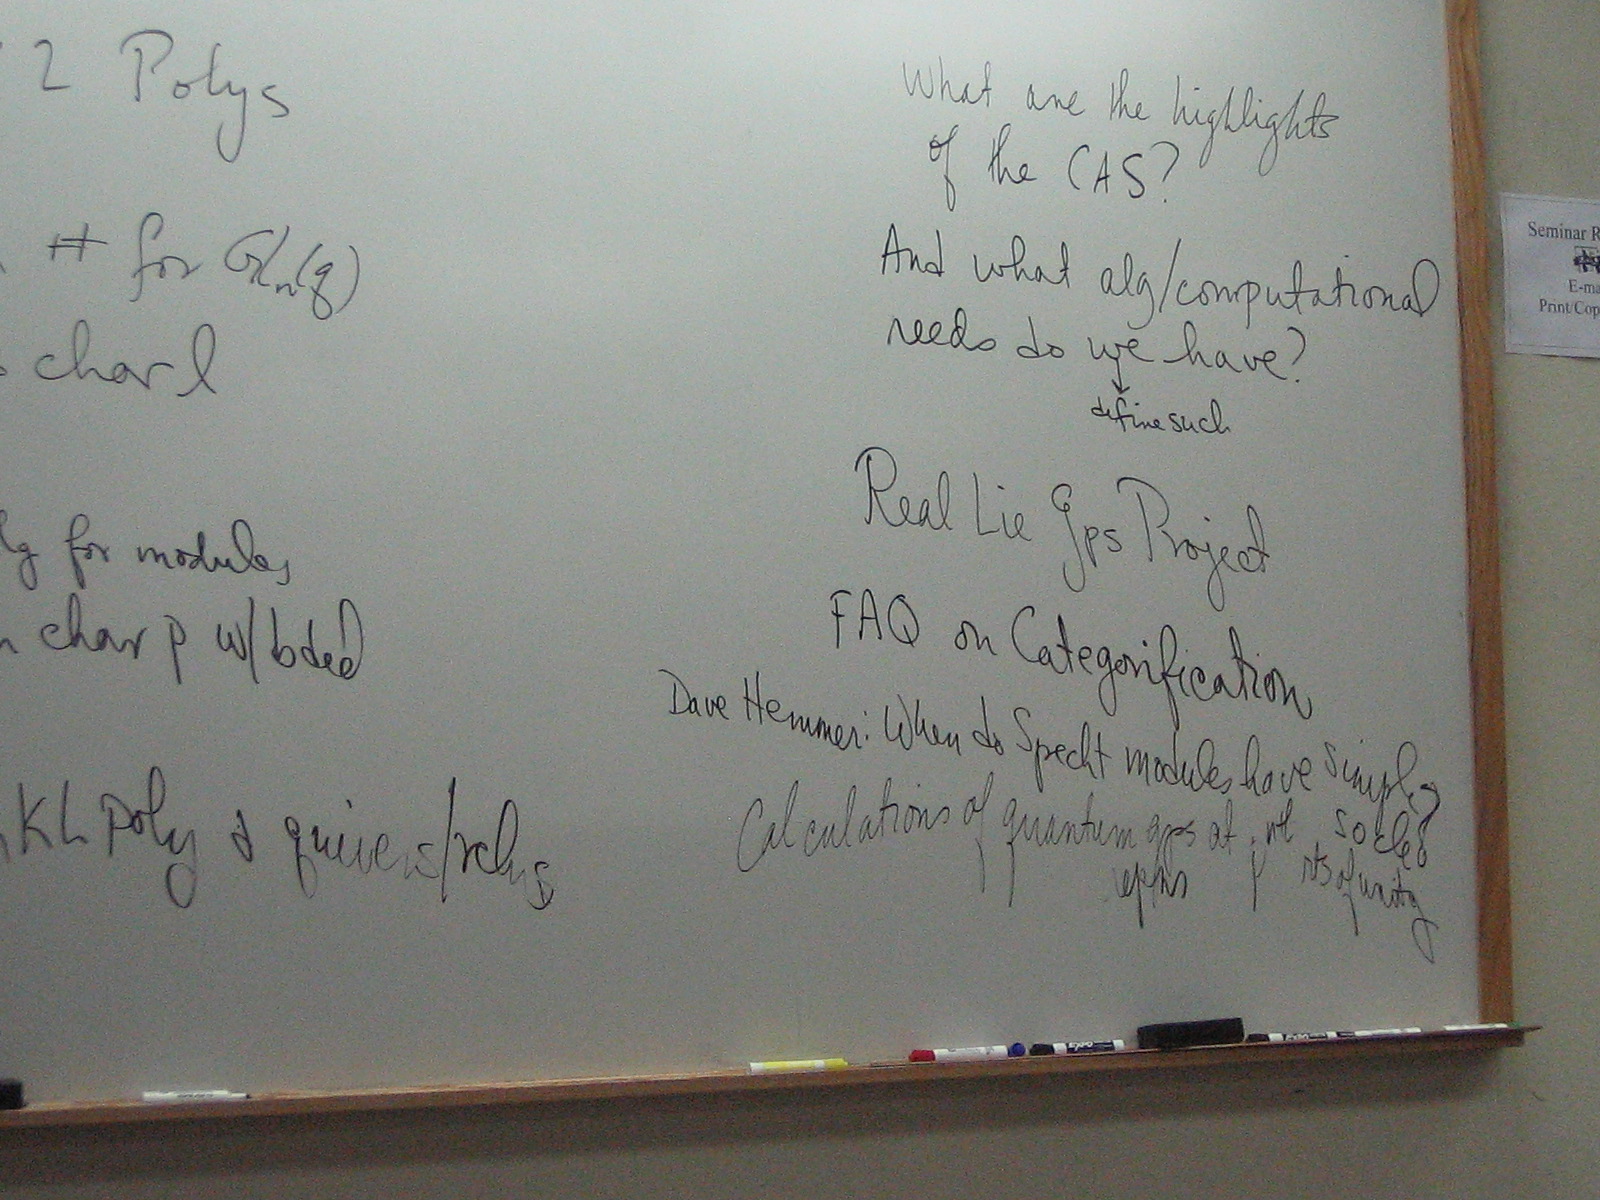 2 Polys
# for GLn(q)
char l
for modules
char p w/bded
KL poly & quivers/relns
What are the highlights
of the CAS?
And what alg/computational
needs do we have?
define such
Real Lie Gps Project
FAQ on Categorification
Dave Hemmer: When do Specht modules have simple
socles?
Calculations of quantum gps at
rts of unity
Seminar R
E-ma
Print/Cop